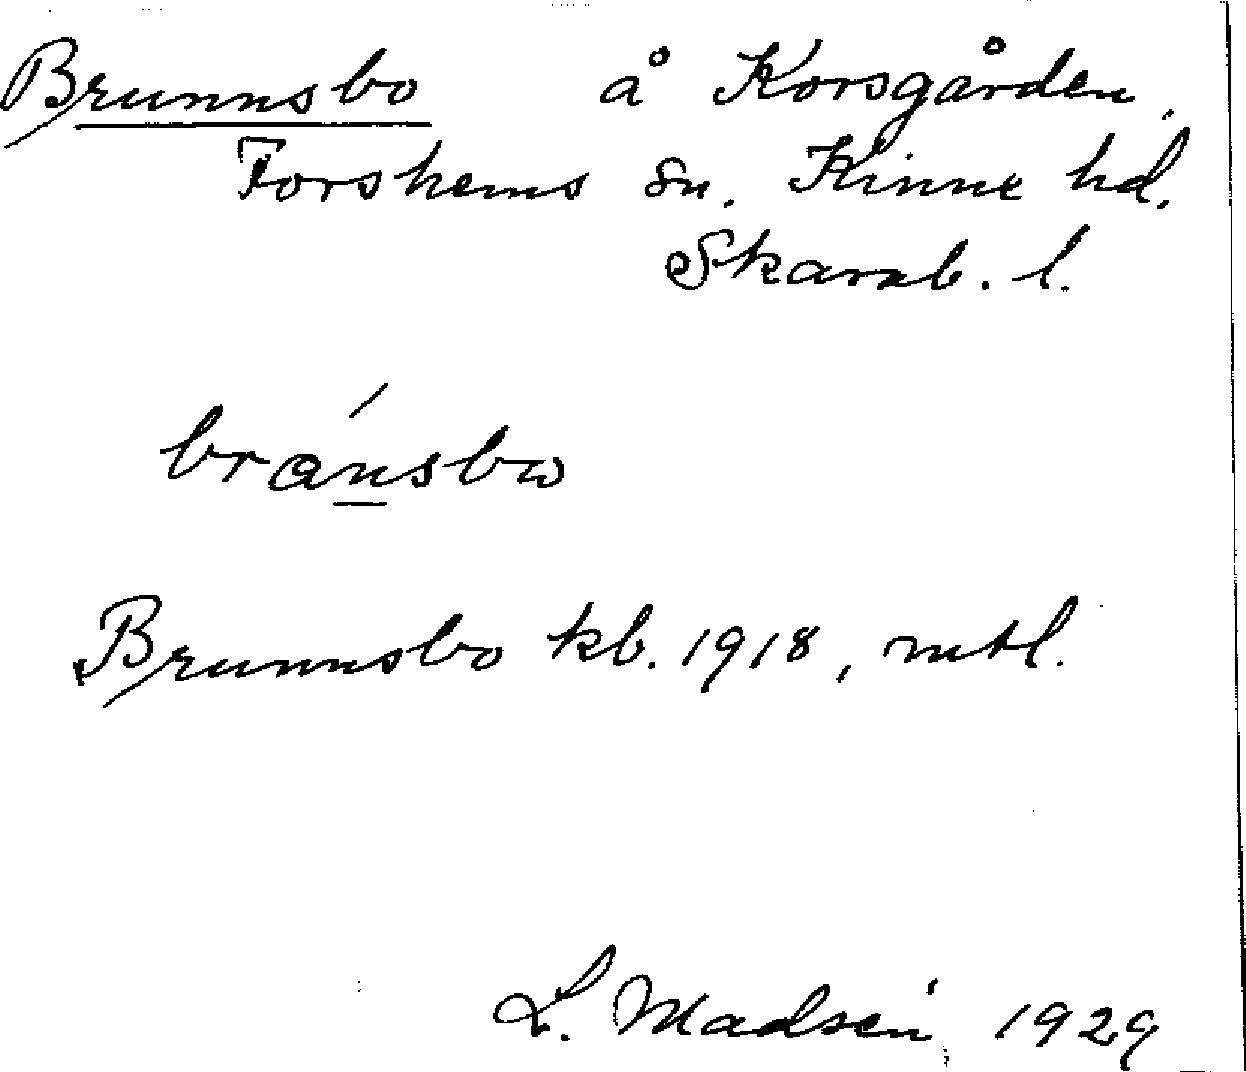 Brunnsbo å Korsgården,
Forshems sn. Kinne hd.
Skarab. l.
bránsbω
Brunnsbo kb. 1918, mtl.
L. Madsén 1929